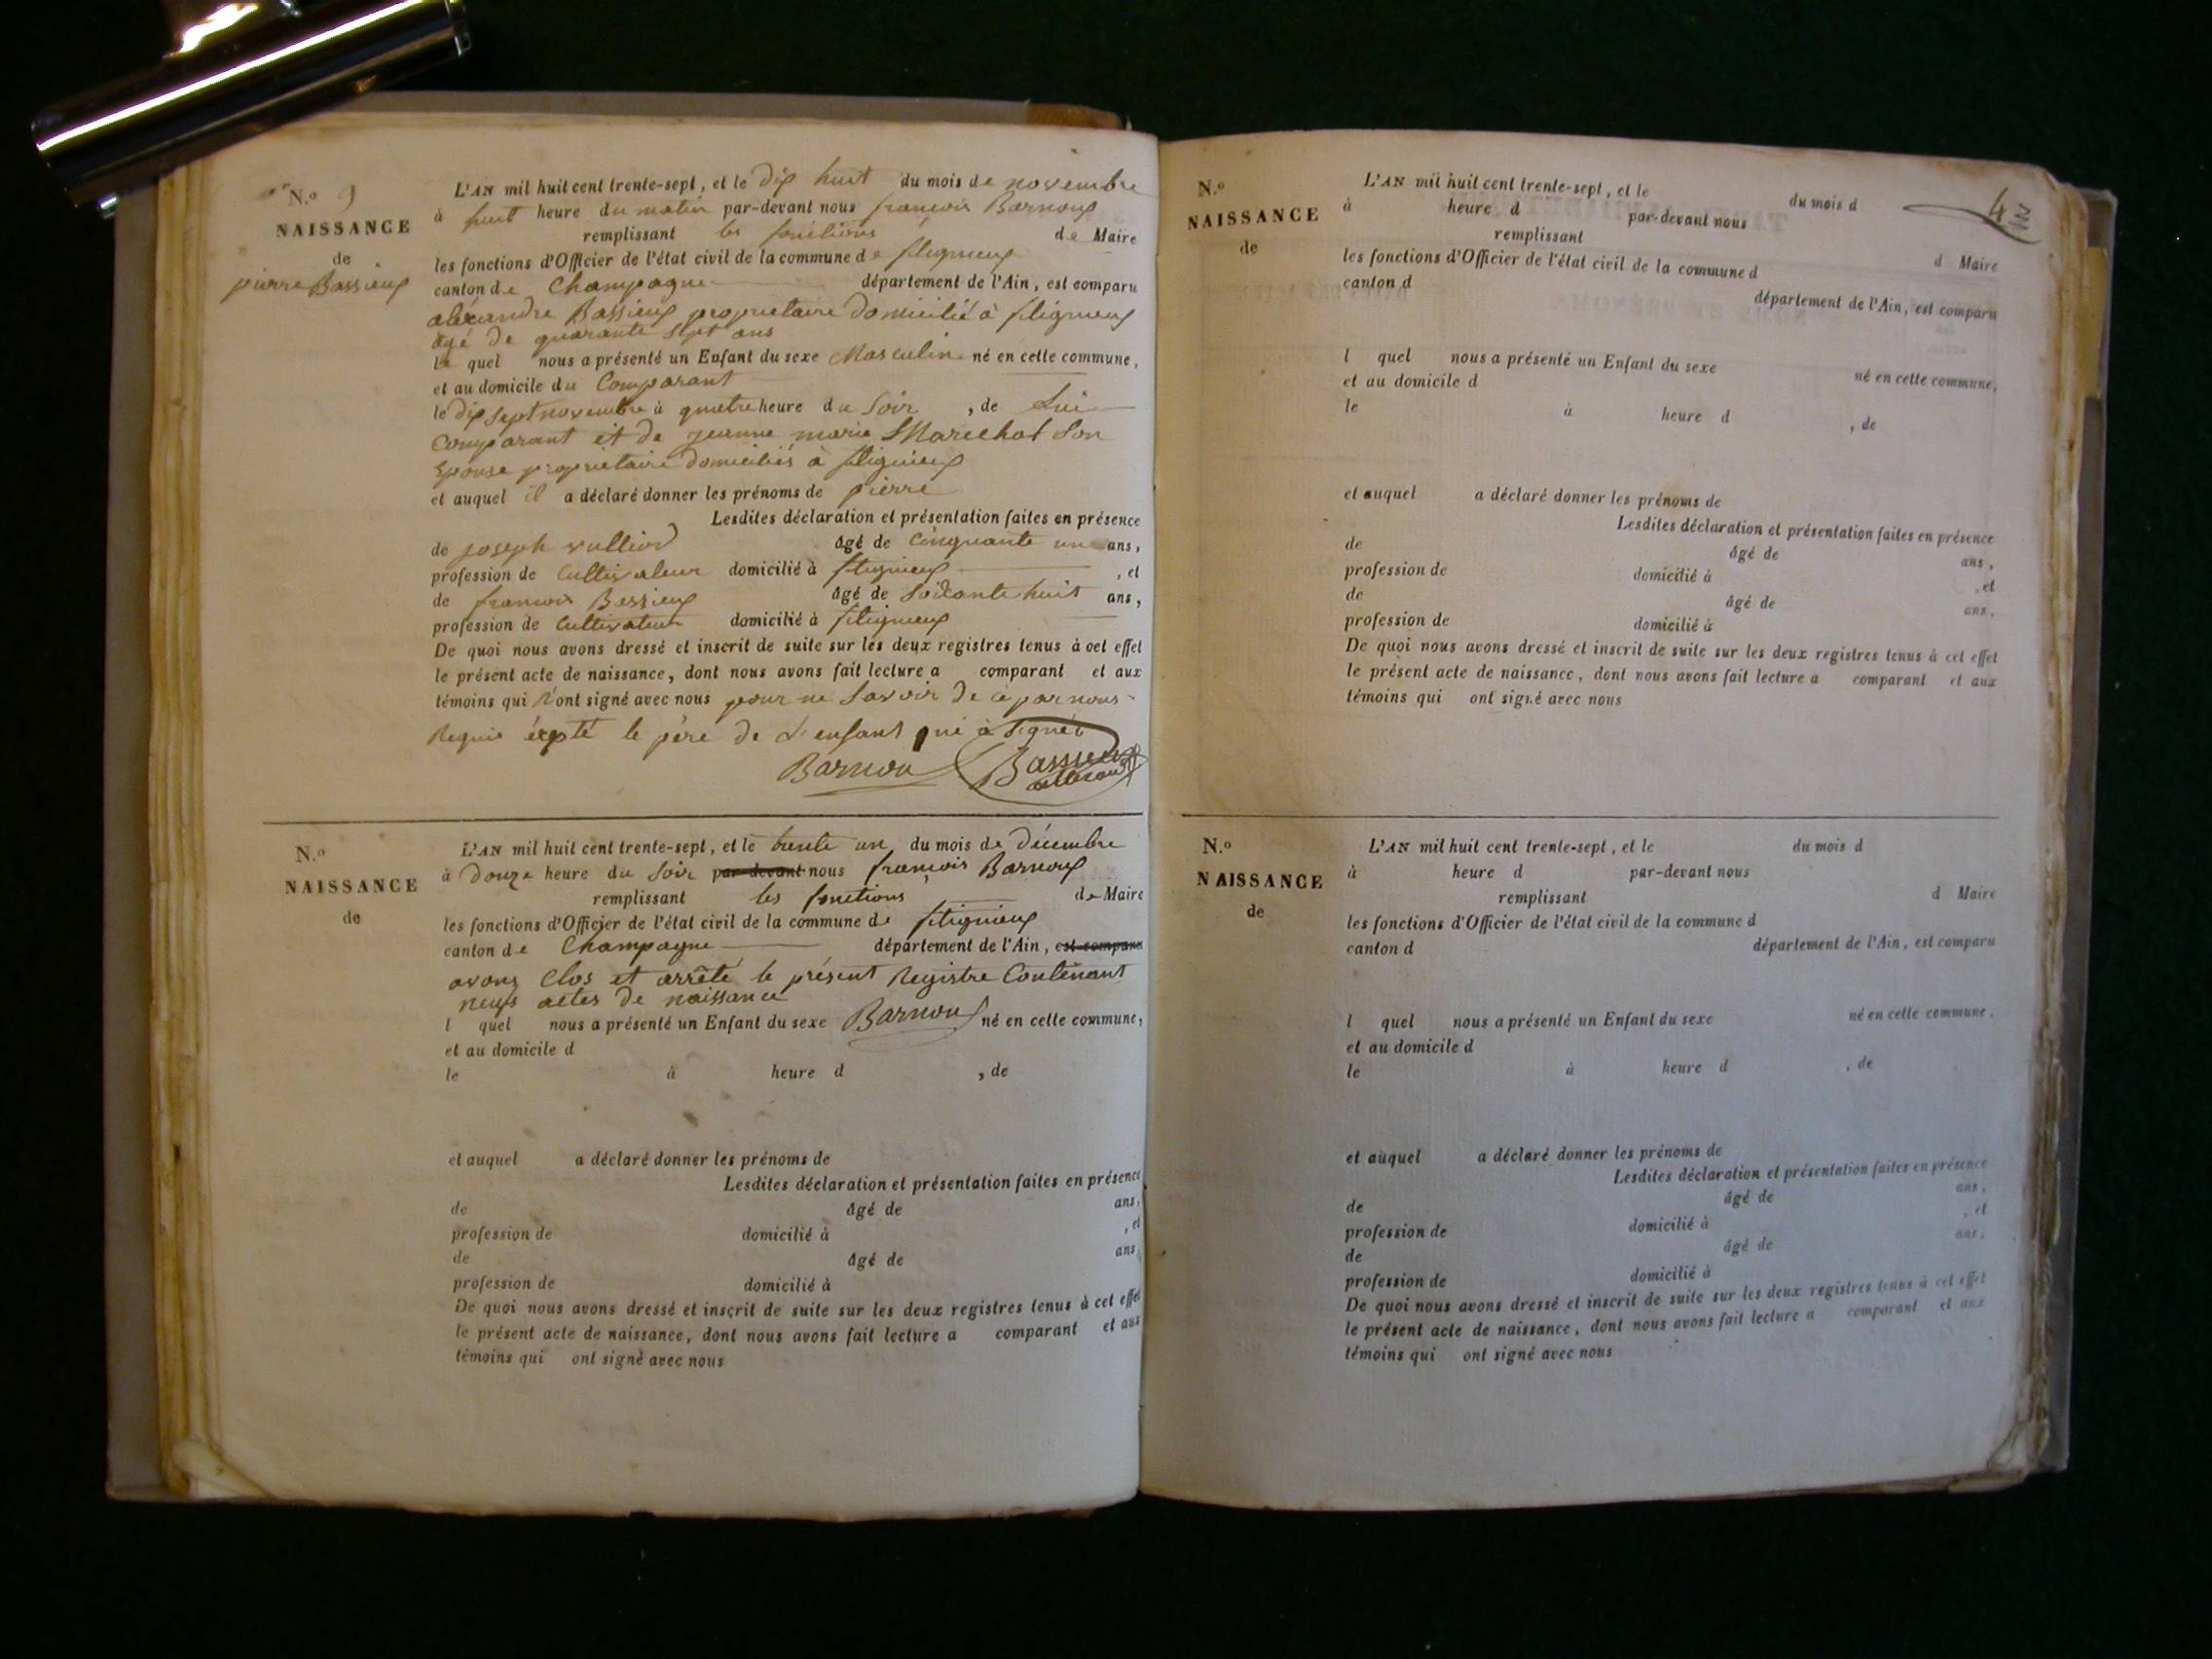 N.o 9
NAISSANCE
de
pierre Bassieux
L'AN mil huit cent trente-sept, et le dix huit du mois de novembre
à huit heure du matin par-devant nous francois Barnoux
remplissant les fonctions de Maire
les fonctions d'Officier de l'état civil de la commune de fitignieux
canton de Champagne département de l'Ain, est comparu
alexandre Bassieux proprietaire domicilié à fitignieux
agé de quarante sept ans
le quel nous a présenté un Enfant du sexe Masculin né en cette commune,
et au domicile du Comparant
le dix sept novembre à quatre heure du Soir , de Lui
Comparant et de jeanne marie Marechal Son
Epouse proprietaire domiciliés à fitignieux
et auquel il a déclaré donner les prénoms de pierre
Lesdites déclaration et présentation faites en présence
de joseph vulliod âgé de cinquante un ans,
profession de Cultivateur domicilié à fitignieux , et
de francois Bessieux âgé de Soixante huit ans,
profession de Cultivateur domicilié à fitignieux
De quoi nous avons dressé et inscrit de suite sur les deux registres tenus à cet effet
le présent acte de naissance, dont nous avons fait lecture a comparant et aux
témoins qui n'ont signé avec nous pour ne Savoir de ce par nous
Requis éxpté le père de L'enfant qui à signé
Barnoux Bassieux
N.o
NAISSANCE
de
L'AN mil huit cent trente-sept, et le trente un du mois de Décembre
à Douze heure du Soir par-devant nous francois Barnoux
remplissant les fonctions de Maire
les fonctions d'Officier de l'état civil de la commune de fitignieux
canton de Champagne département de l'Ain, est comparu
avons Clos et arrêté le présent Registre Contenant
neuf actes de naissance
l quel nous a présenté un Enfant du sexe Barnoux né en cette commune,
et au domicile d
le à heure d , de
et auquel a déclaré donner les prénoms de
Lesdites déclaration et présentation faites en présence
de âgé de ans,
profession de domicilié à , et
de âgé de ans,
profession de domicilié à
De quoi nous avons dressé et inscrit de suite sur les deux registres tenus à cet effet
le présent acte de naissance, dont nous avons fait lecture a comparant et aux
témoins qui ont signé avec nous
43
N.o
NAISSANCE
de
L'AN mil huit cent trente-sept, et le du mois d
à heure d par-devant nous
remplissant d Maire
les fonctions d'Officier de l'état civil de la commune d
canton d département de l'Ain, est comparu
l quel nous a présenté un Enfant du sexe né en cette commune,
et au domicile d
le à heure d , de
et auquel a déclaré donner les prénoms de
Lesdites déclaration et présentation faites en présence
de âgé de ans,
profession de domicilié à , et
de âgé de ans,
profession de domicilié à
De quoi nous avons dressé et inscrit de suite sur les deux registres tenus à cet effet
le présent acte de naissance, dont nous avons fait lecture a comparant et aux
témoins qui ont signé avec nous
N.o
NAISSANCE
de
L'AN mil huit cent trente-sept, et le du mois d
à heure d par-devant nous
remplissant d Maire
les fonctions d'Officier de l'état civil de la commune d
canton d département de l'Ain, est comparu
l quel nous a présenté un Enfant du sexe né en cette commune,
et au domicile d
le à heure d , de
et auquel a déclaré donner les prénoms de
Lesdites déclaration et présentation faites en présence
de âgé de ans,
profession de domicilié à , et
de âgé de ans,
profession de domicilié à
De quoi nous avons dressé et inscrit de suite sur les deux registres tenus à cet effet
le présent acte de naissance, dont nous avons fait lecture a comparant et aux
témoins qui ont signé avec nous